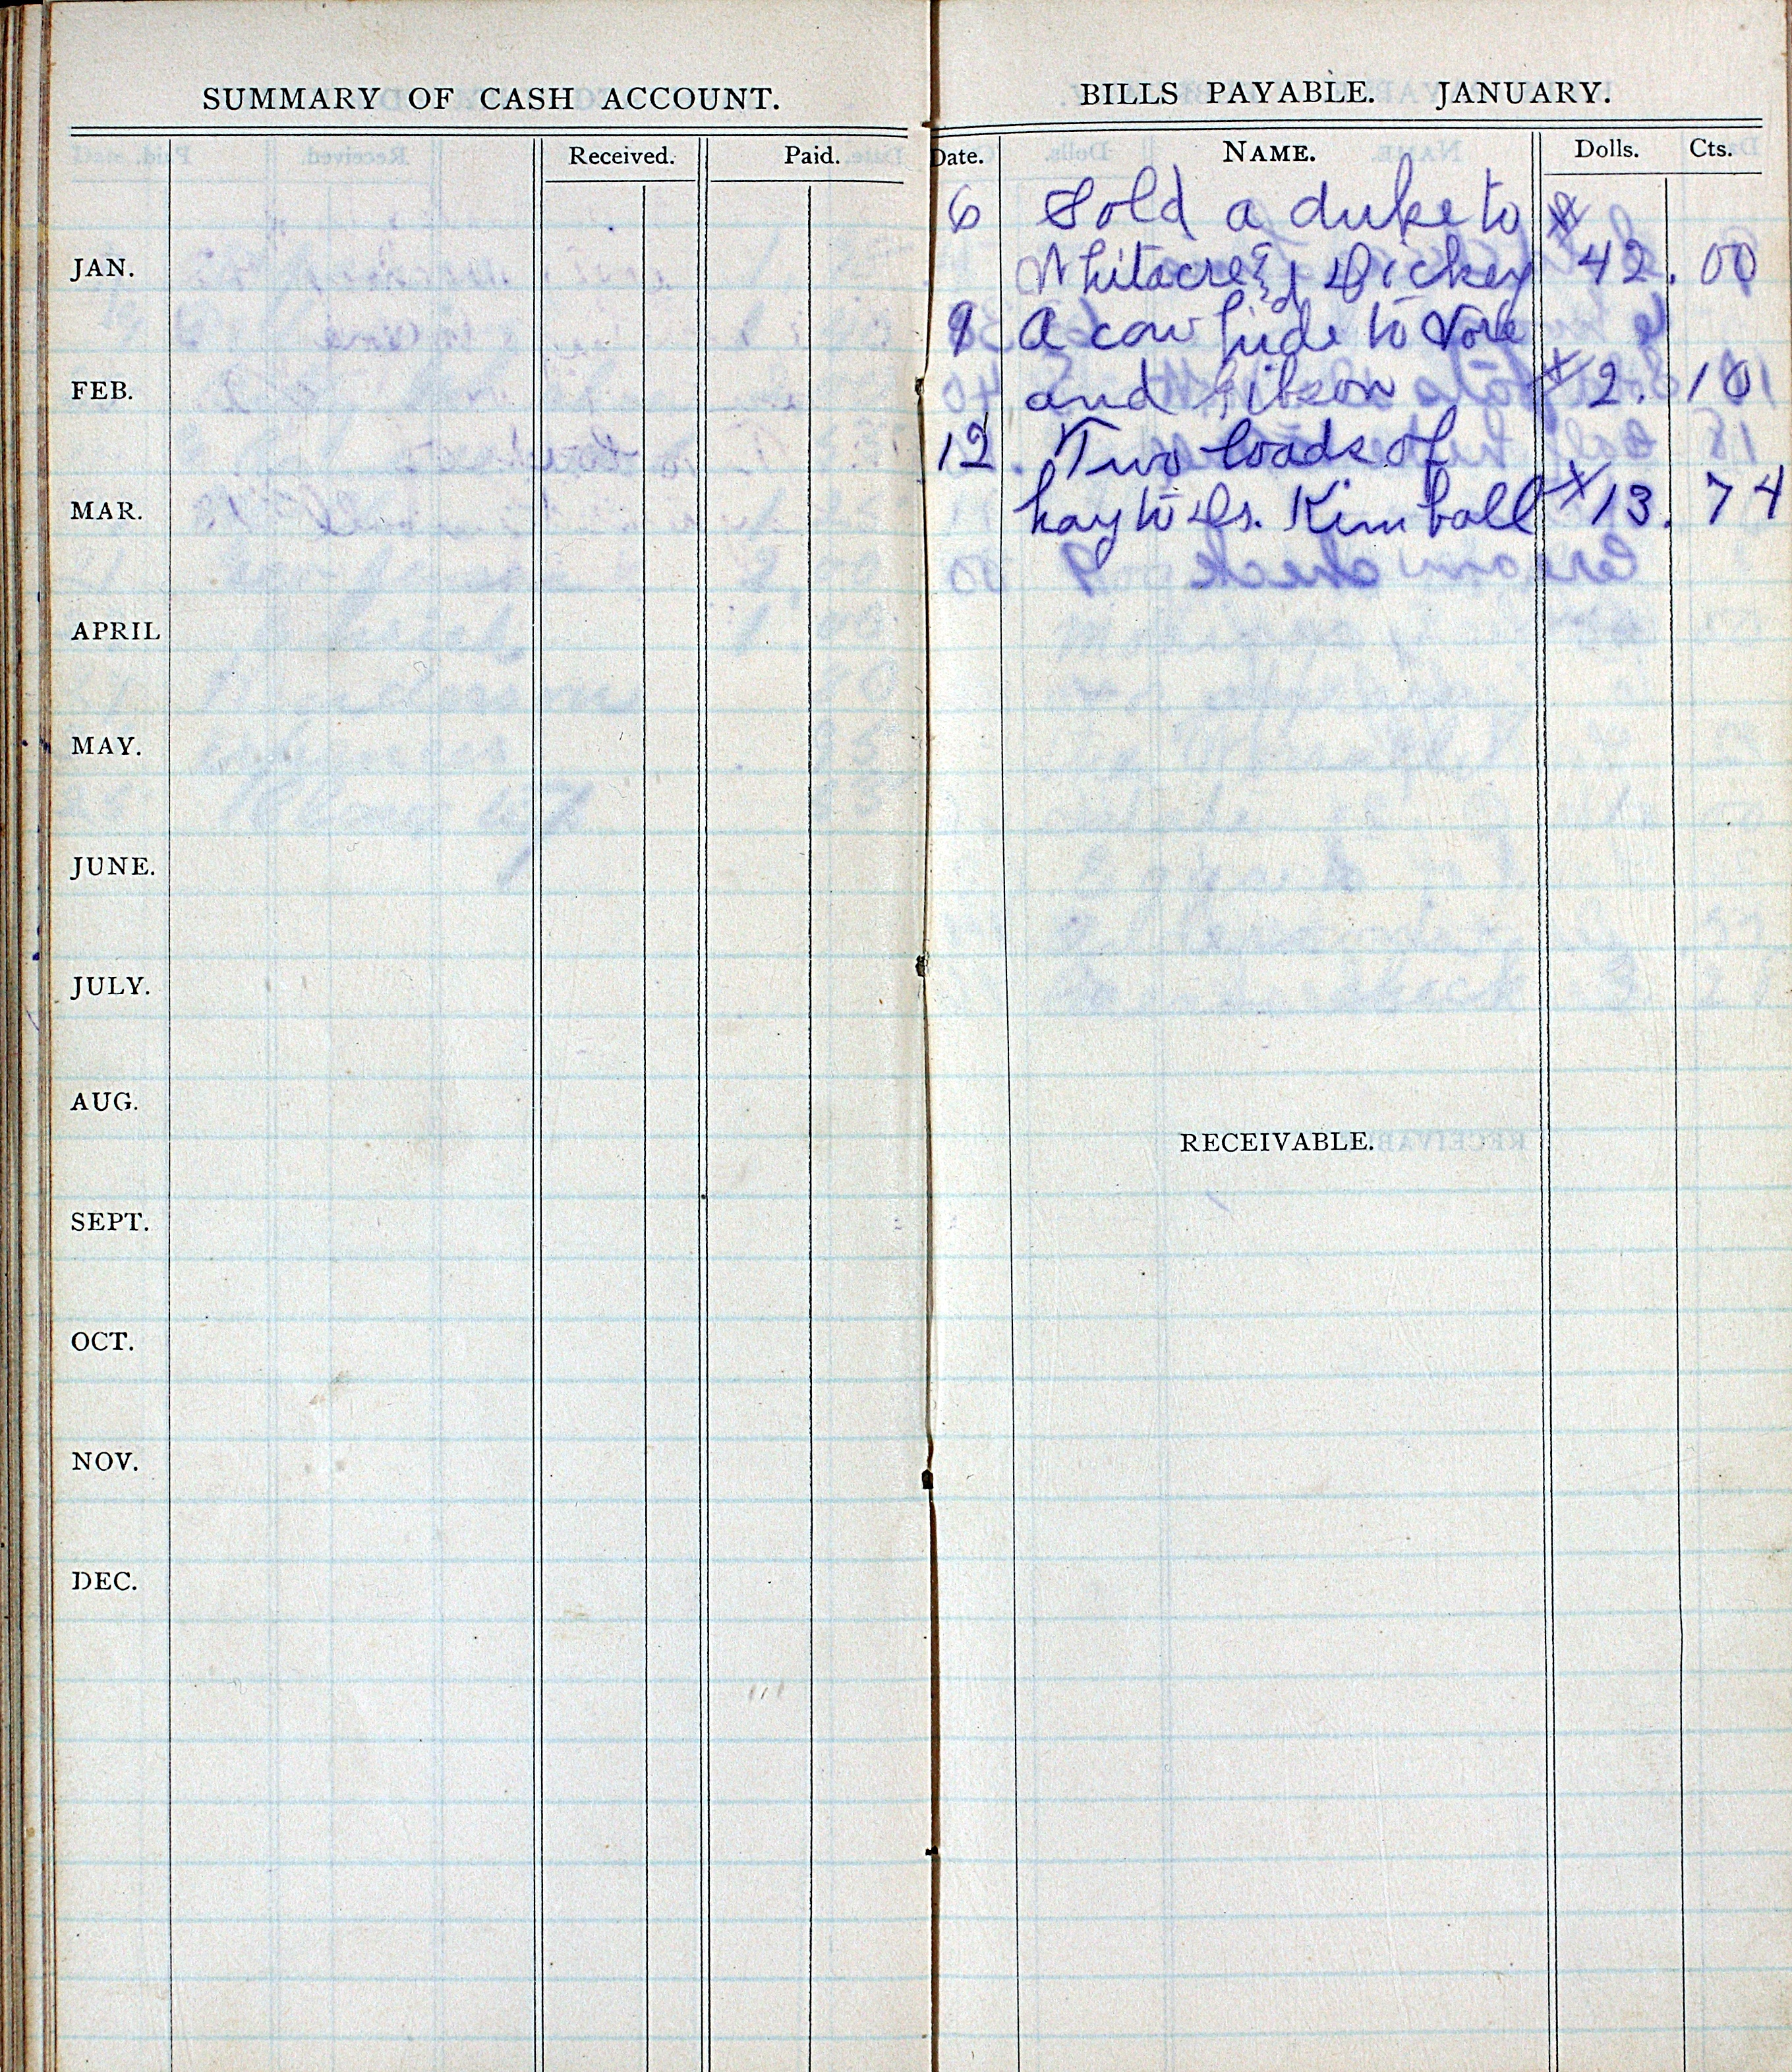 SUMMARY OF CASH ACCOUNT.
Received. Paid.
JAN.
FEB.
MAR.
APRIL
MAY.
JUNE.
JULY.
AUG.
SEPT.
OCT.
NOV.
DEC.
BILLS PAYABLE. JANUARY.
Date. NAME. Dolls. Cts.
6 Sold a duke to $
Whitacre & Dickey 42.00
9 A cow hide to Vore
and Gibson $2.10
12. Two loads of
hay to Dr. Kimball $13.74
RECEIVABLE.